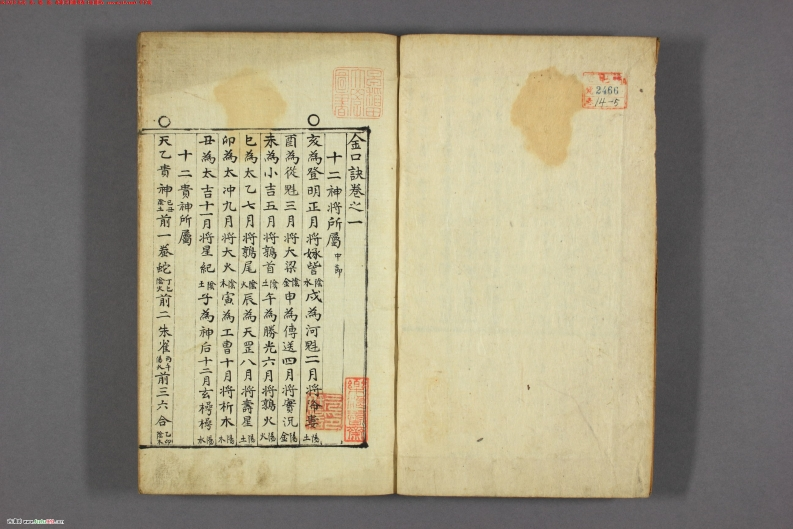 金口訣卷之一
十二神將所屬 中節
亥為登明正月將娵訾陰水戌為河魁二月將降婁陽土
酉為從魁三月將大梁陰金申為傳送四月將實沈陽金
未為小吉五月將鶉首陰土午為勝光六月將鶉火陽火
巳為太乙七月將鶉尾陰火辰為天罡八月將壽星陽土
卯為太冲九月將大火陰木寅為工曹十月將析木陽木
丑為太吉十一月將星紀陰土子為神后十二月玄枵陽水
十二貴神所屬
天乙貴神己丑陰土前一螣蛇丁巳陰火前二朱雀丙午陽火前三六合乙卯陰木
2466
14-15